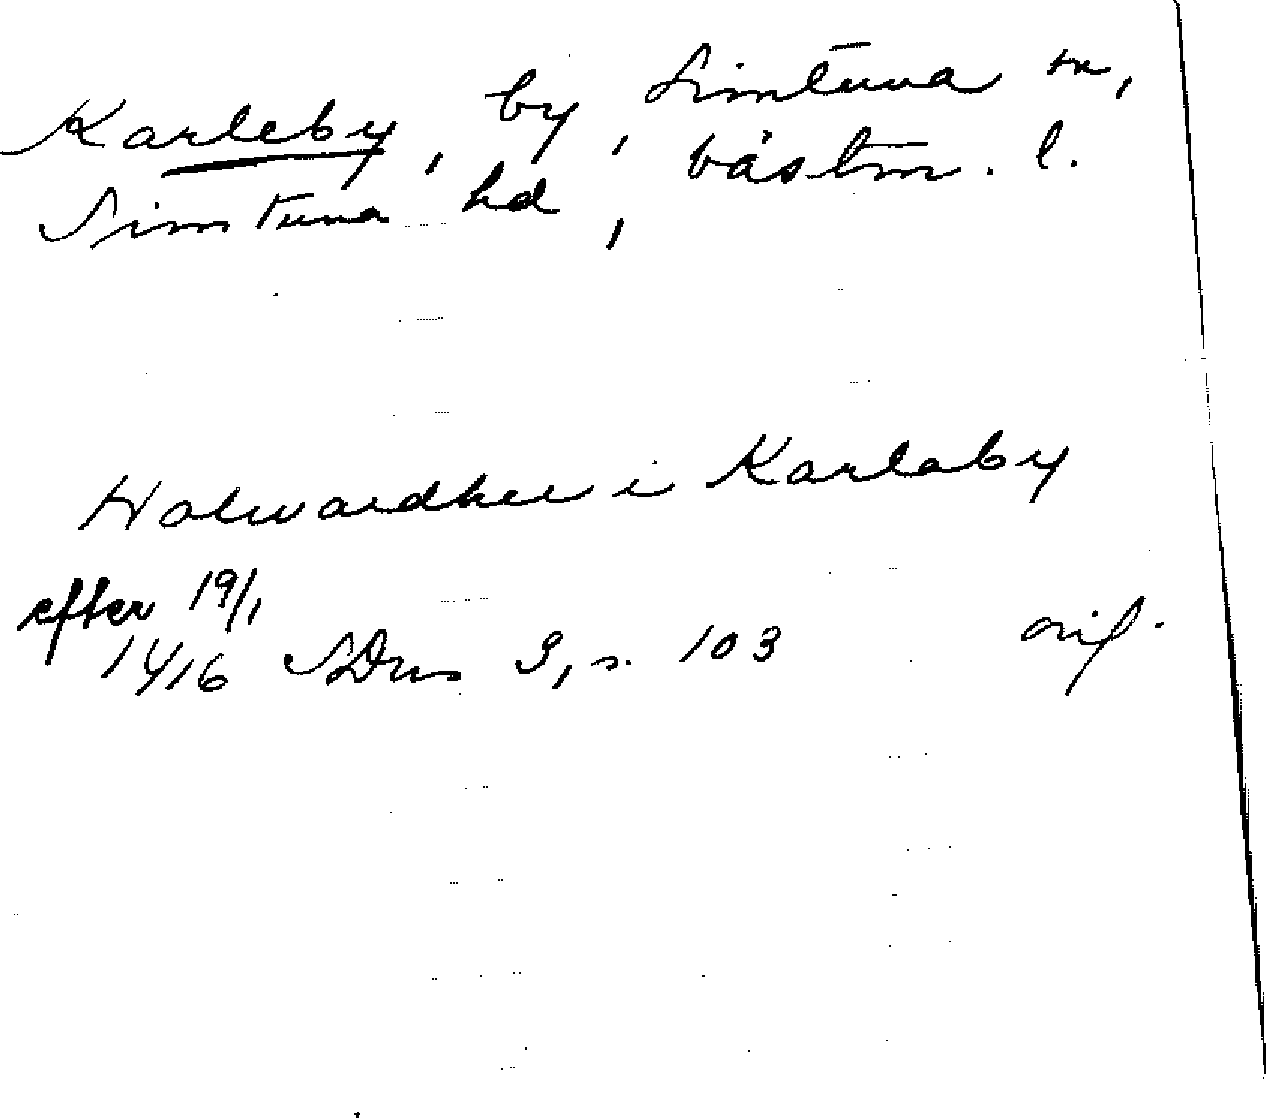 Karleby, by, Simtuna sn,
Simtuna hd, Västm. l.
Halwardher i Karlaby
efter 19/1
1416 SDns 3, s. 103 orig.